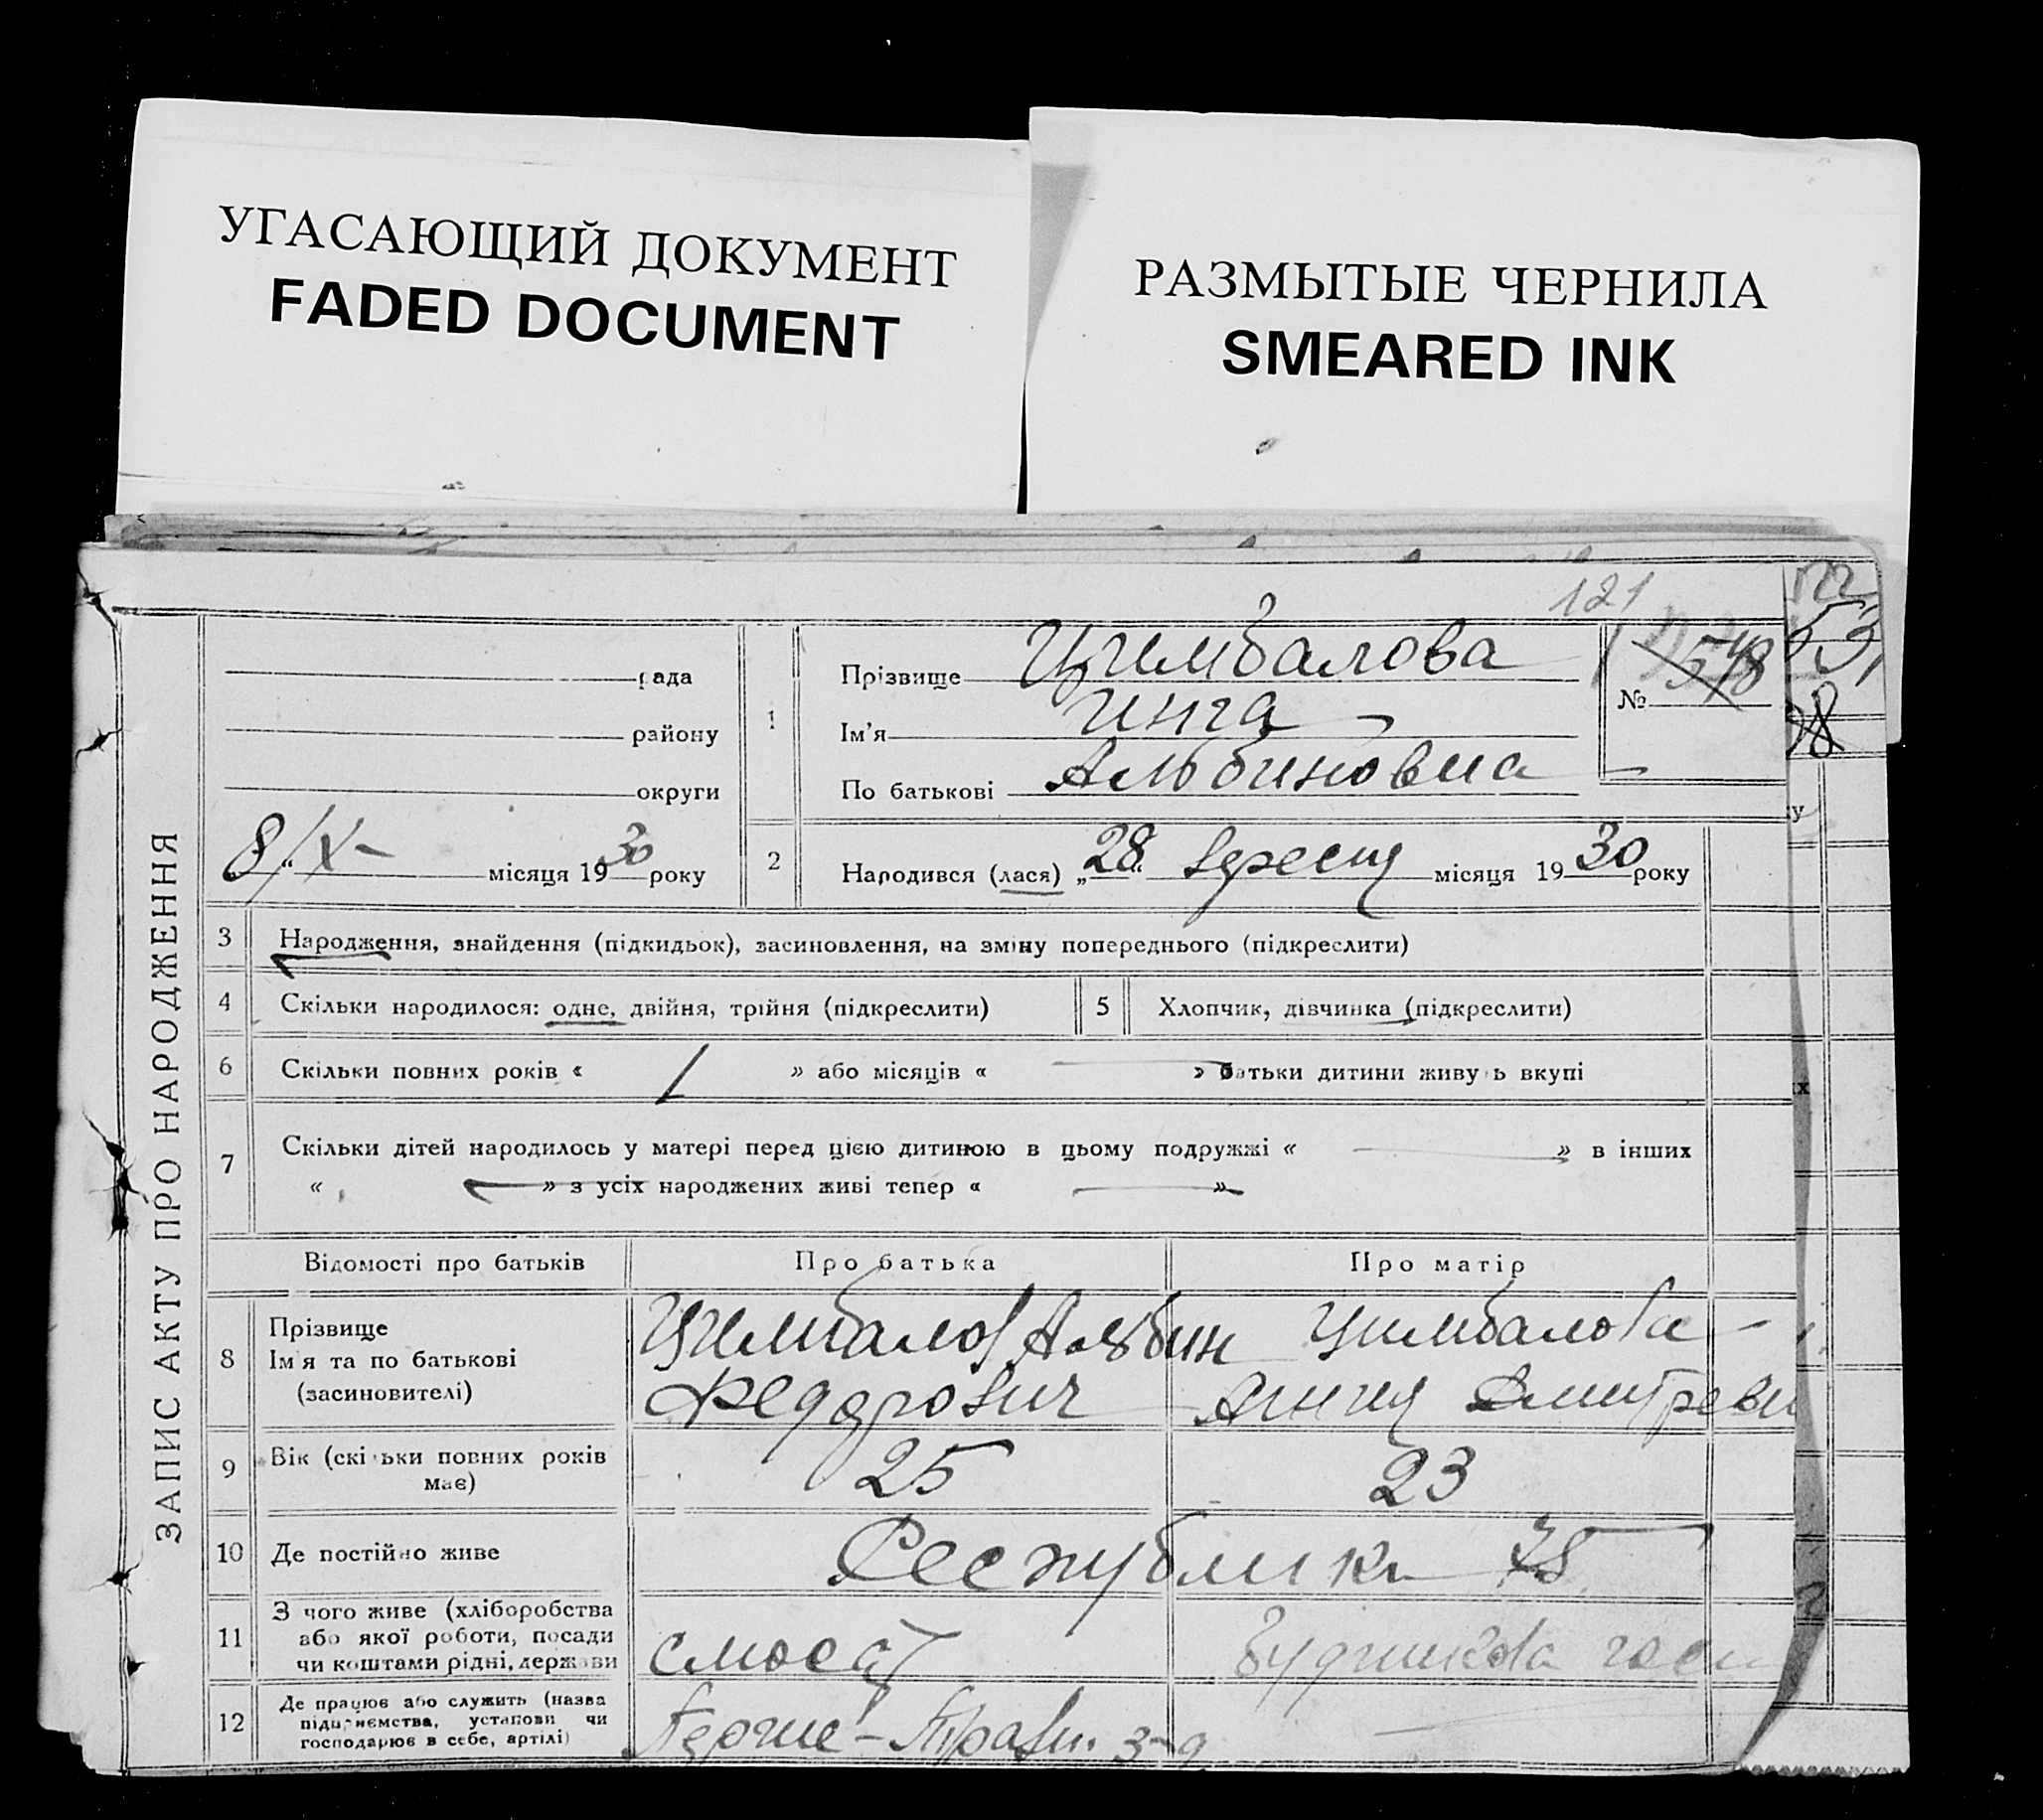 УГАСАЮЩИЙ ДОКУМЕНТ
FADED DOCUMENT
РАЗМЫТЫЕ ЧЕРНИЛА
SMEARED INK
121
ЗАПИС АКТУ ПРО НАРОДЖЕННЯ
рада
району
округи
8/X- місяця 1930 року
1
Прізвище Цимбалова
Ім'я Инга
По батькові Альбиновна
№ 548
2 Народився (лася) „28“ вересня місяця 1930 року
3 Народження, знайдення (підкидьок), засиновлення, на зміну попереднього (підкреслити)
4 Скільки народилося: одне, двійня, трійня (підкреслити)
5 Хлопчик, дівчинка (підкреслити)
6 Скільки повних років « 1 » або місяців « — » батьки дитини живуть вкупі
7 Скільки дітей народилось у матері перед цією дитиною в цьому подружжі « — » в інших
« — » з усіх народжених живі тепер « — »
Відомості про батьків Про батька Про матір
8 Прізвище Ім'я та по батькові (засиновителі)
Цимбалов Альбин
Федорович
Цимбалова
Анна Дмитреви
9 Вік (скільки повних років має) 25 23
10 Де постійно живе Республики 75
11 З чого живе (хліборобства
або якої роботи, посади
чи коштами рідні, держави
12 Де працює або служить (назва
підприємства, установи чи
господарює в себе, артілі)